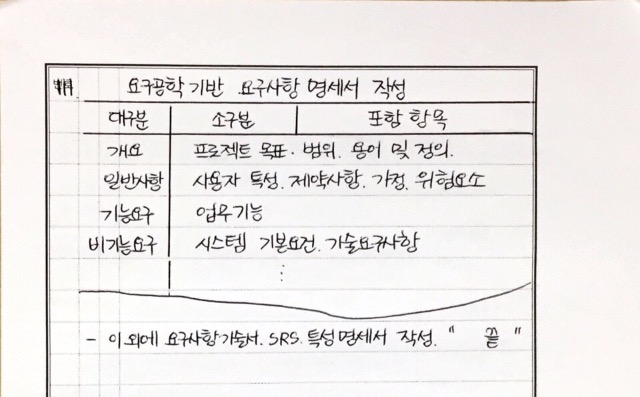 요구공학 기반 요구사항 명세서 작성
대구분 소구분 포함 항목
개요 프로젝트 목표·범위. 용어 및 정의.
일반사항 사용자 특성. 제약사항. 가정. 위험요소
기능요구 업무기능
비기능요구 시스템 기본요건. 기술요구사항
⋮
- 이외에 요구사항기술서. SRS. 특성명세서 작성. " 끝 "